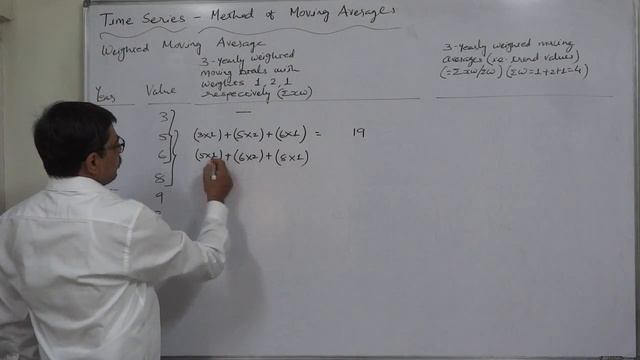 Time Series - Method of Moving Averages
Weighted Moving Average
3-Yearly weighted
moving totals with
weights 1, 2, 1
respectively (Σxω)
3-Yearly weighted moving
averages (i.e. trend values)
(=Σxω/Σω) (Σω=1+2+1=4)
Value
3 —
5 (3×1)+(5×2)+(6×1) = 19
6 (5×1)+(6×2)+(8×1)
8
9